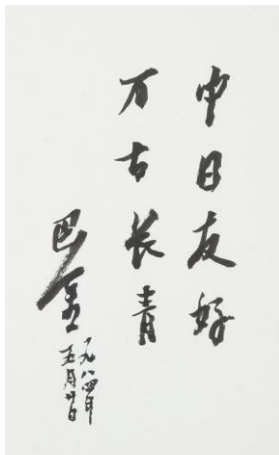 中日友好
万古长青
巴金
一九八四年
五月廿日